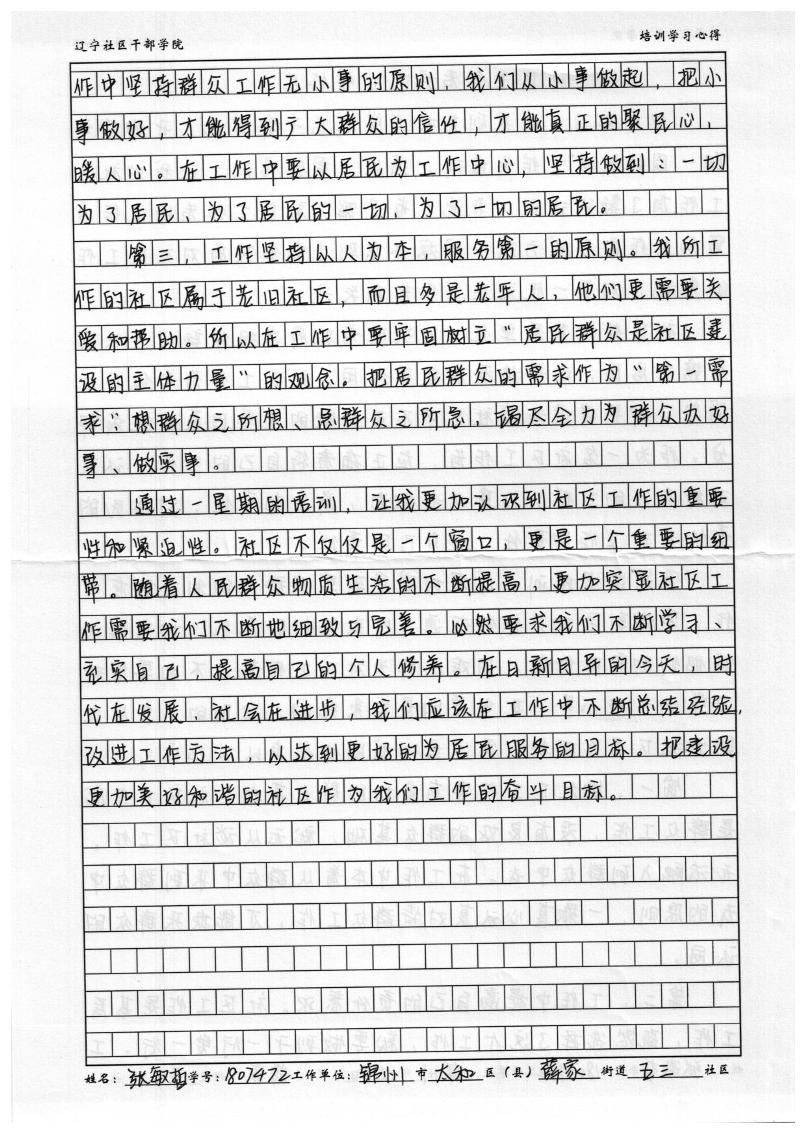 辽宁社区干部学院 培训学习心得
作中坚持群众工作无小事的原则,我们从小事做起,把小
事做好,才能得到广大群众的信任,才能真正的聚民心、
暖人心。在工作中要以居民为工作中心,坚持做到:一切
为了居民、为了居民的一切、为了一切的居民。
第三,工作坚持以人为本,服务第一的原则。我所工
作的社区属于老旧社区,而且多是老年人,他们更需要关
爱和帮助。所以在工作中要牢固树立“居民群众是社区建
设的主体力量”的观念。把居民群众的需求作为“第一需
求”想群众之所想、急群众之所急,竭尽全力为群众办好
事、做实事。
通过一星期的培训,让我更加认识到社区工作的重要
性和紧迫性。社区不仅仅是一个窗口,更是一个重要的纽
带。随着人民群众物质生活的不断提高,更加突显社区工
作需要我们不断地细致与完善。必然要求我们不断学习、
充实自己,提高自己的个人修养。在日新月异的今天,时
代在发展、社会在进步,我们应该在工作中不断总结经验,
改进工作方法,以达到更好的为居民服务的目标。把建设
更加美好和谐的社区作为我们工作的奋斗目标。
姓名:张敏哲 学号:1807472 工作单位:锦州 市 太和 区(县) 薛家 街道 五三 社区